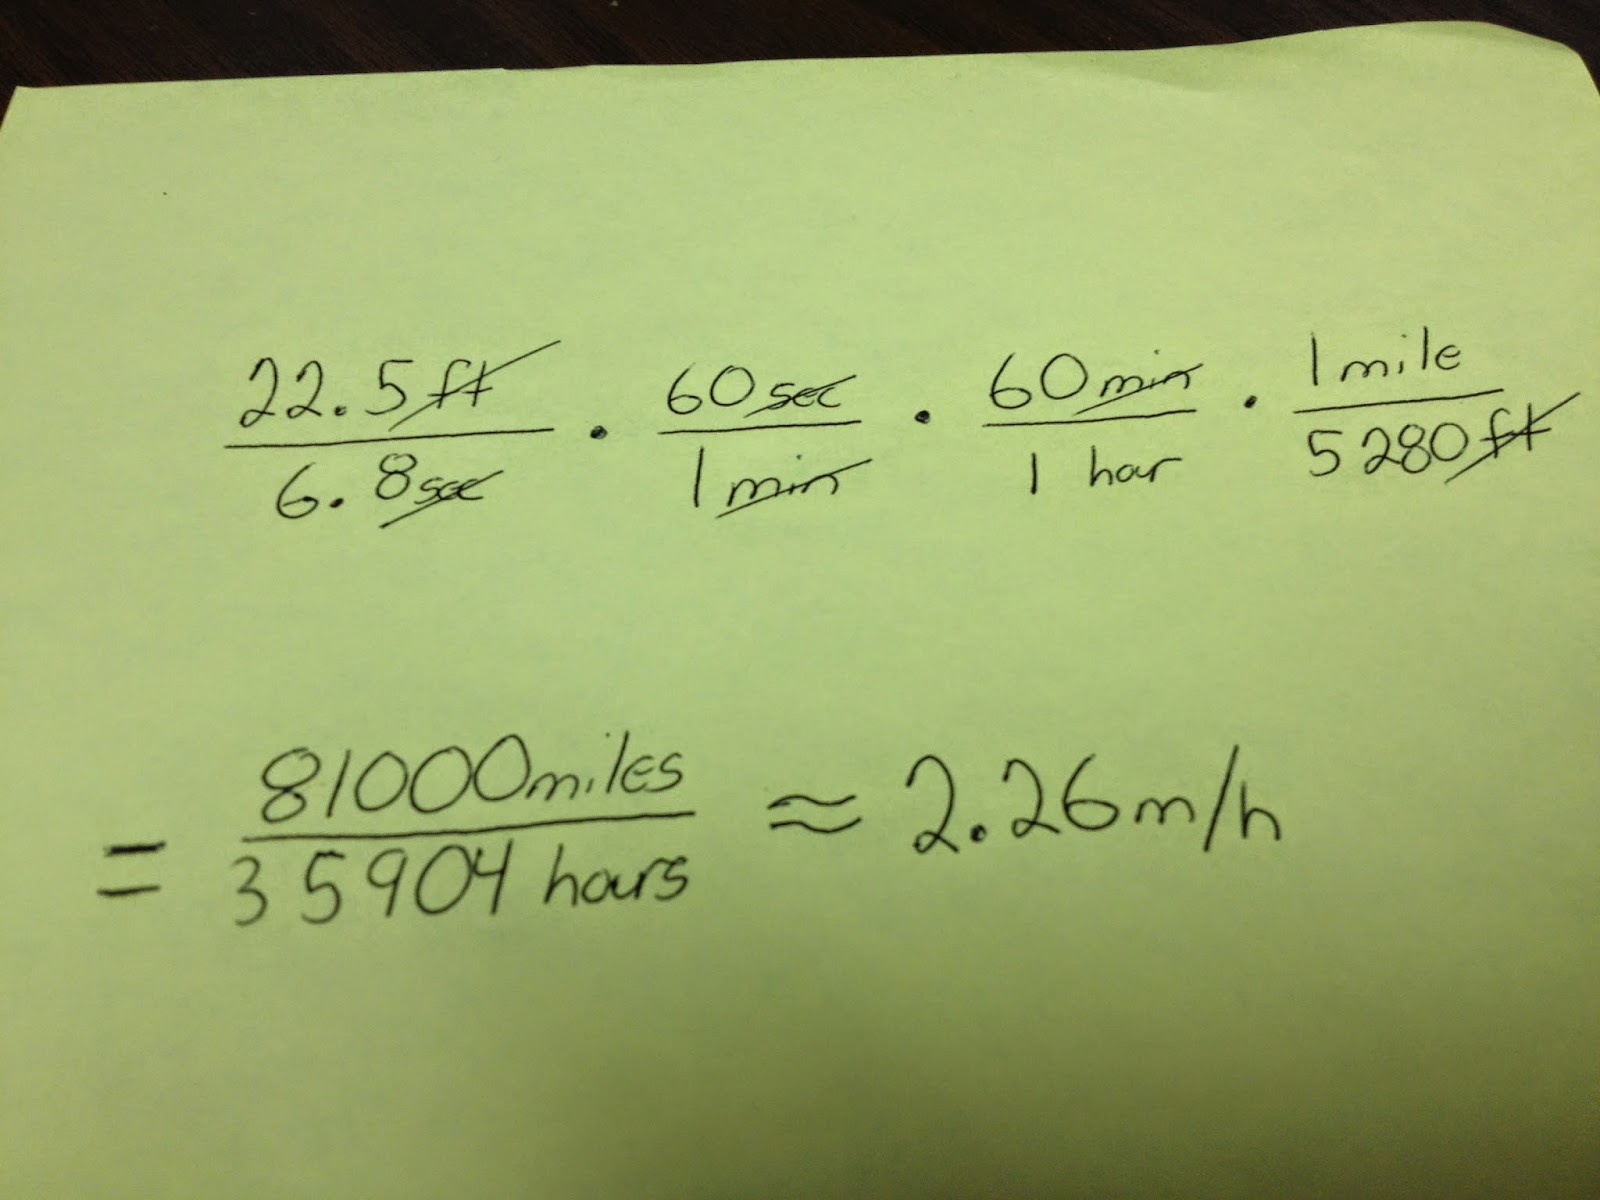 22.5ft/6.8sec · 60sec/1min · 60min/1 hour · 1mile/5280ft
= 81000miles/35904 hours ≈ 2.26m/h